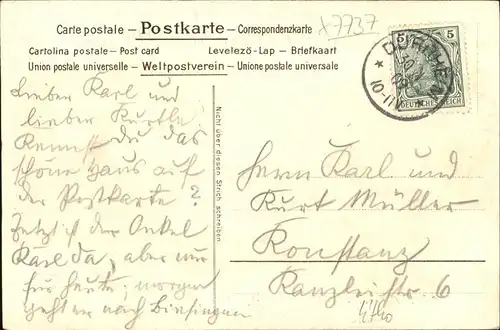 Carte postale – Postkarte – Correspondenzkarte
x7737
Cartolina postale – Post card Levelezö-Lap – Briefkaart
Union postale universelle – Weltpostverein – Unione postale universale
5 5
DEUTSCHES REICH
10-11
Lieben Karl und
lieber Kurtle
Kennst du das
schöne Haus auf
der Postkarte?
Jetzt ist der Onkel
Karl da, aber nur
für heute; morgen
geht er nach
Nicht über diesen Strich schreiben.
Herrn Karl und
Kurt Müller
Konstanz
Kanzleistr. 6